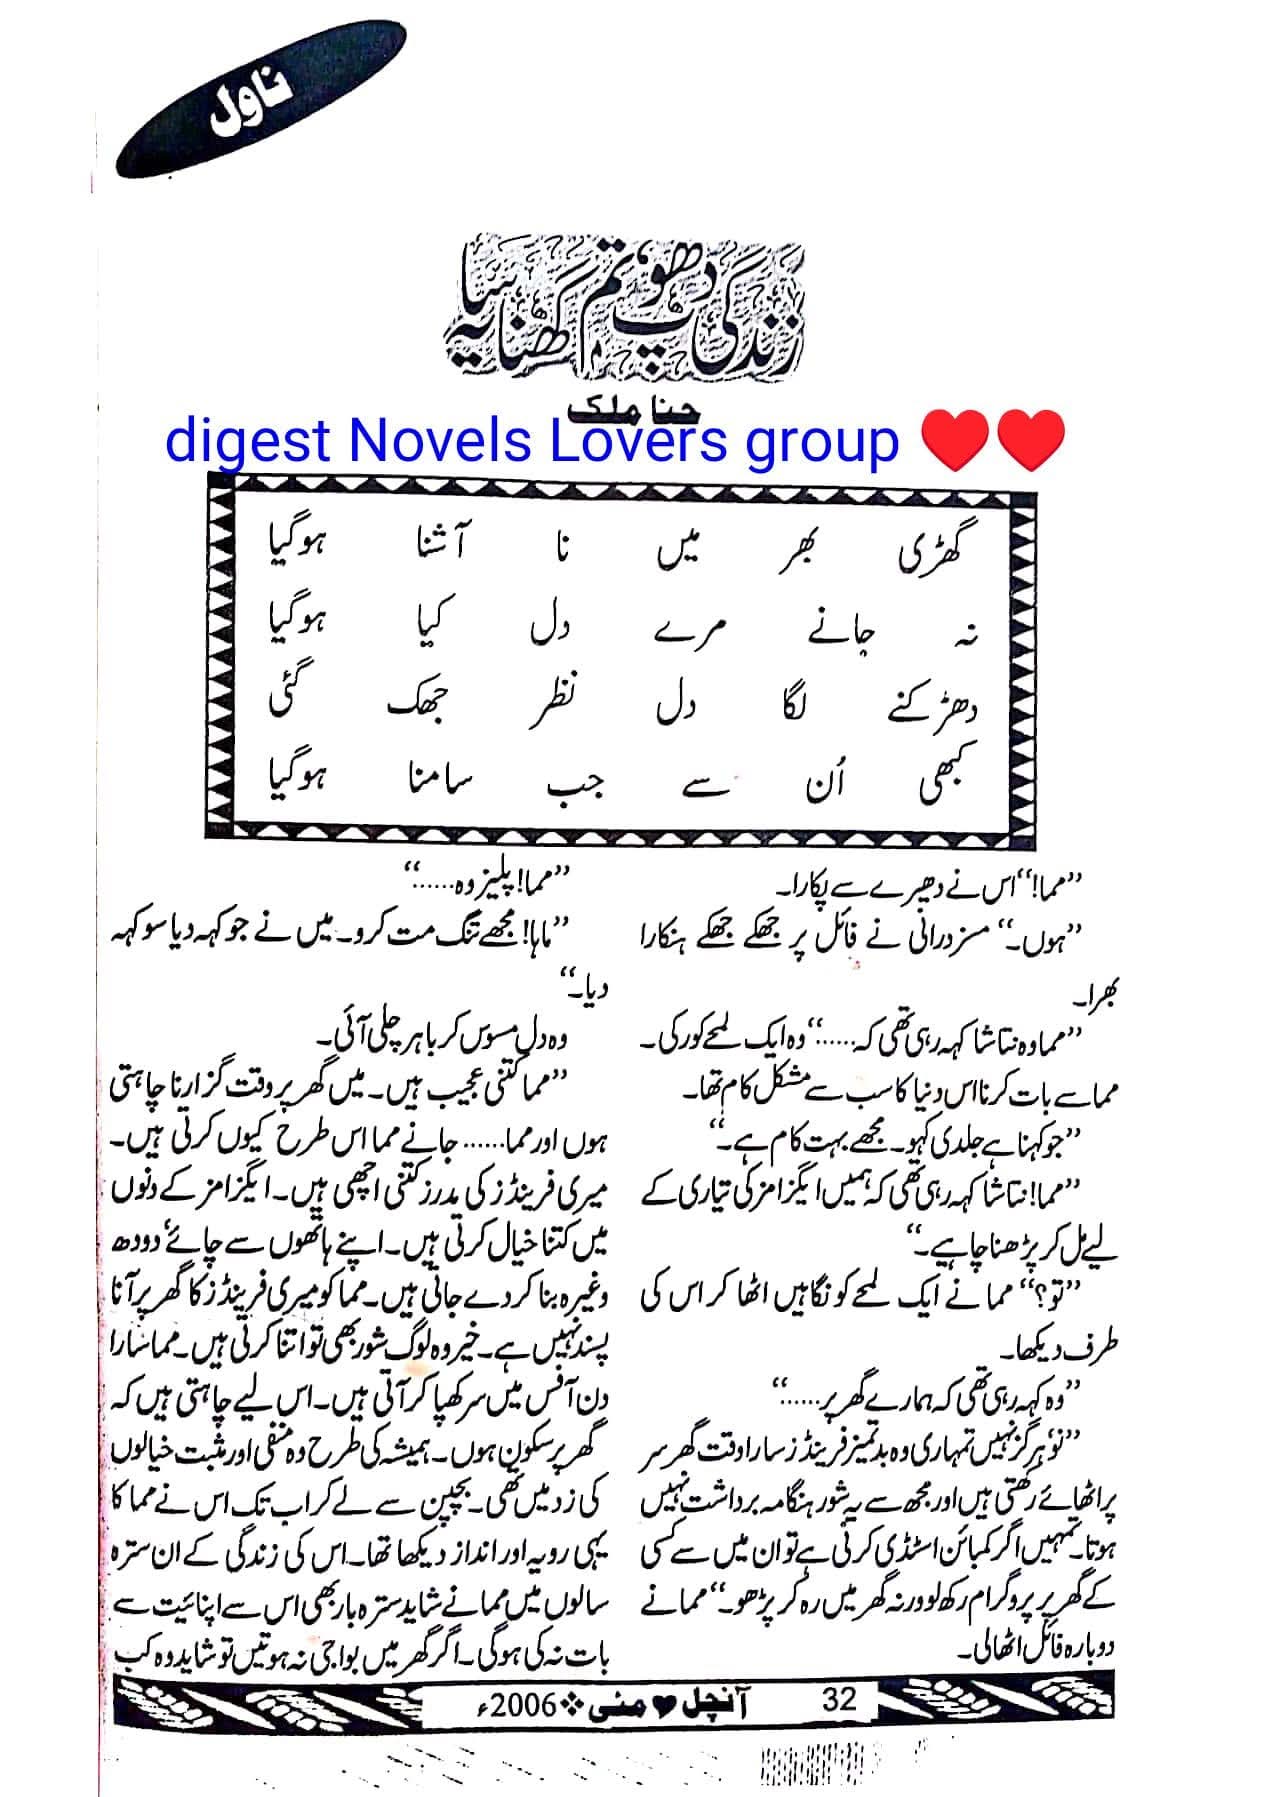 ناول
زندگی دھوپ تم گھنا سایہ
حنا ملک
digest Novels Lovers group ❤️❤️
گھڑی بھر میں نا آشنا ہوگیا
نہ جانے مرے دل کیا ہوگیا
دھڑکنے لگا دل نظر جھک گئی
کبھی اُن سے جب سامنا ہوگیا
”مما!“ اس نے دھیرے سے پکارا۔
”ہوں۔“ مسز درانی نے فائل پر جھکے جھکے ہنکارا
بھرا۔
”مما وہ نتاشا کہہ رہی تھی کہ……“ وہ ایک لمحے کو رکی۔
مما سے بات کرنا اس دنیا کا سب سے مشکل کام تھا۔
”جو کہنا ہے جلدی کہو۔ مجھے بہت کام ہے۔“
”مما! نتاشا کہہ رہی تھی کہ ہمیں ایگزامز کی تیاری کے
لیے مل کر پڑھنا چاہیے۔“
”تو؟“ مما نے ایک لمحے کو نگاہیں اٹھا کر اس کی
طرف دیکھا۔
”وہ کہہ رہی تھی کہ ہمارے گھر پر……“
”نو‘ ہرگز نہیں تمہاری وہ بدتمیز فرینڈز سارا وقت گھر سر
پر اٹھائے رکھتی ہیں اور مجھ سے یہ شور ہنگامہ برداشت نہیں
ہوتا۔ تمہیں اگر کمبائن اسٹڈی کرنی ہے تو ان میں سے کسی
کے گھر پر پروگرام رکھ لو ورنہ گھر میں رہ کر پڑھو۔“ مما نے
دوبارہ فائل اٹھالی۔
”مما! پلیز وہ……“
”ماہا! مجھے تنگ مت کرو۔ میں نے جو کہہ دیا سو کہہ
دیا۔“
وہ دل مسوس کر باہر چلی آئی۔
”مما کتنی عجیب ہیں۔ میں گھر پر وقت گزارنا چاہتی
ہوں اور مما…… جانے مما اس طرح کیوں کرتی ہیں۔
میری فرینڈز کی مدرز کتنی اچھی ہیں۔ ایگزامز کے دنوں
میں کتنا خیال کرتی ہیں۔ اپنے ہاتھوں سے چائے‘ دودھ
وغیرہ بنا کر دے جاتی ہیں۔ مما کو میری فرینڈز کا گھر پر آنا
پسند نہیں ہے۔ خیر وہ لوگ شور بھی تو اتنا کرتی ہیں۔ مما سارا
دن آفس میں سر کھپا کر آتی ہیں۔ اس لیے چاہتی ہیں کہ
گھر پر سکون ہوں۔ ہمیشہ کی طرح وہ منفی اور مثبت خیالوں
کی زد میں تھی۔ بچپن سے لے کر اب تک اس نے مما کا
یہی رویہ اور انداز دیکھا تھا۔ اس کی زندگی کے ان سترہ
سالوں میں مما نے شاید سترہ بار بھی اس سے اپنائیت سے
بات نہ کی ہوگی۔ اگر گھر میں بواجی نہ ہوتیں تو شاید وہ کب
32 آنچل ♥ مئی ❖ 2006ء